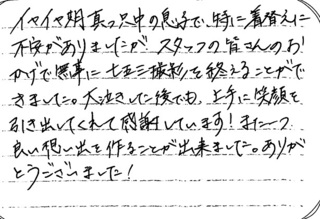 イヤイヤ期真っ只中の息子で、特に着替えに
不安がありましたが スタッフの皆さんのお
かげで無事に七五三撮影を終えることがで
きました。大泣きした後でも、上手に笑顔を
引き出してくれて感謝しています！また一つ
良い想い出を作ることが出来ました。ありが
とうございました！